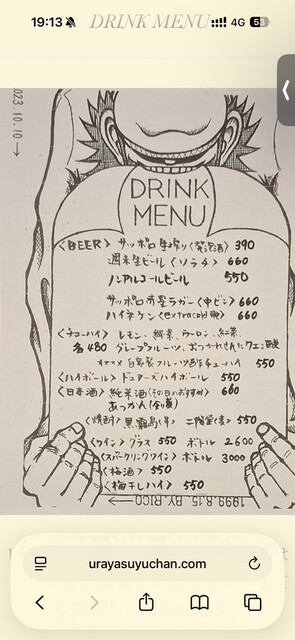 19:13
DRINK MENU
4G
5
2023.10.10→
DRINK
MENU
〈BEER〉 サッポロ生搾り〈発泡酒〉 390
週末生ビール〈ソラチ〉 660
ノンアルコールビール 550
サッポロ赤星ラガー〈中ビン〉 660
ハイネケン〈extra cold 〉 660
〈チューハイ〉 レモン、緑茶、ウーロン、紅茶、
各480 グレープルーツ、おつかれさんクエン酸
オススメ 自家製フルーツ酢チューハイ 550
〈ハイボール〉 デュアーズハイボール 550
〈日本酒〉 純米酒(その日のおすすめ) 660
あつかん
〈焼酎〉 黒霧島/芋 二階堂/麦 550
〈ワイン〉 グラス 550 ボトル 2600
〈スパークリングワイン〉 ボトル 3000
〈梅酒〉 550
〈梅干しハイ〉 550
1999.8.15 BY RICO
urayasuyuchan.com